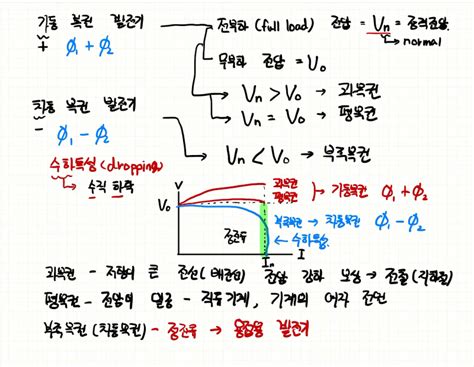 가동 복권 발전기
+ φ₁ + φ₂
전부하 (full load) 전압 = Vn = 정격전압
normal
무부하 전압 = Vo
Vn > Vo → 과복권
Vn = Vo → 평복권
차동 복권 발전기
- φ₁ - φ₂
Vn < Vo → 부족복권
수하특성 (dropping)
↳ 수직 하락
V
Vo
과복권
평복권
} → 가동복권 φ₁ + φ₂
부족복권 → 차동복권 φ₁ - φ₂
← 수하특성
정전류
In
I
과복권 - 저항이 큰 전선 ( ) 전압 강하 보상 →
평복권 - 전압이 일정 - 직류기계, 기계의 여자 전원
부족복권 (차동복권) - 정전류 → 용접용 발전기